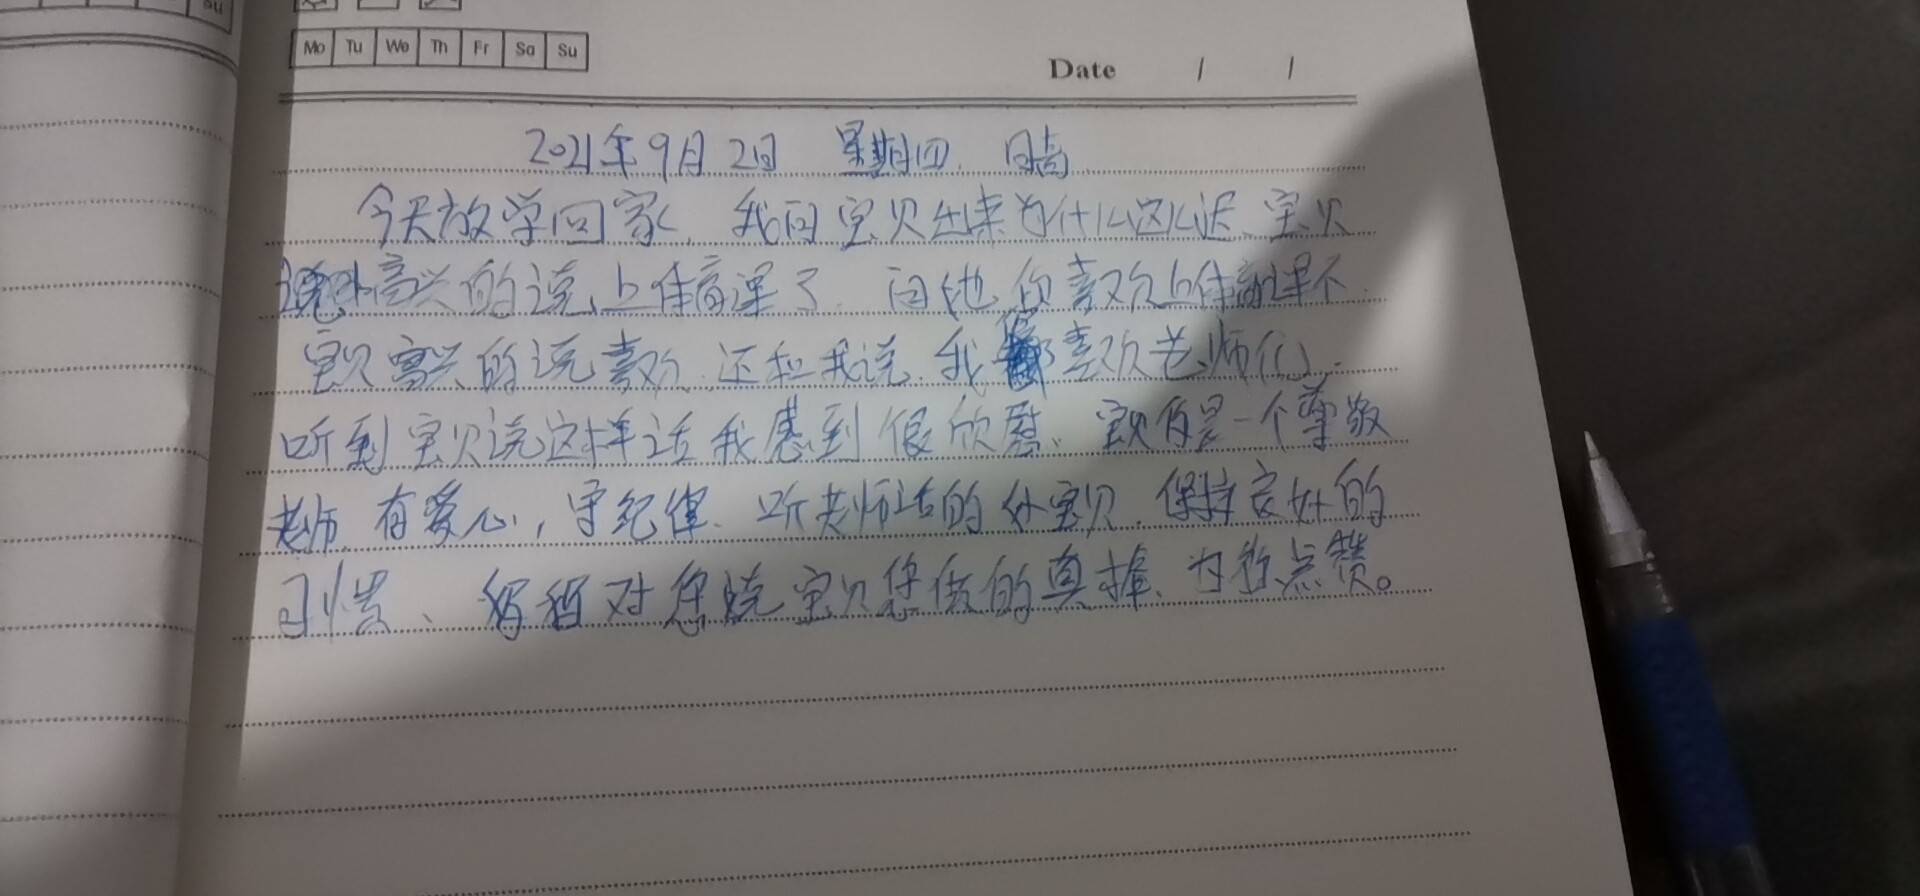 Su
Mo Tu We Th Fr Sa Su
Date / /
2021年9月2日 星期四
今天放学回家,我问宝贝出来为什么这么迟、宝贝
高兴的说,上体育课了.问他你喜欢上体育课不.
宝贝高兴的说喜欢.还和我说.我都喜欢老师们.
听到宝贝说这样话我感到很欣慰、宝贝是一个尊敬
老师.有爱心,守纪律.听老师话的好宝贝.保持良好的
习惯、妈妈对您说宝贝您做的真棒、为你点赞。